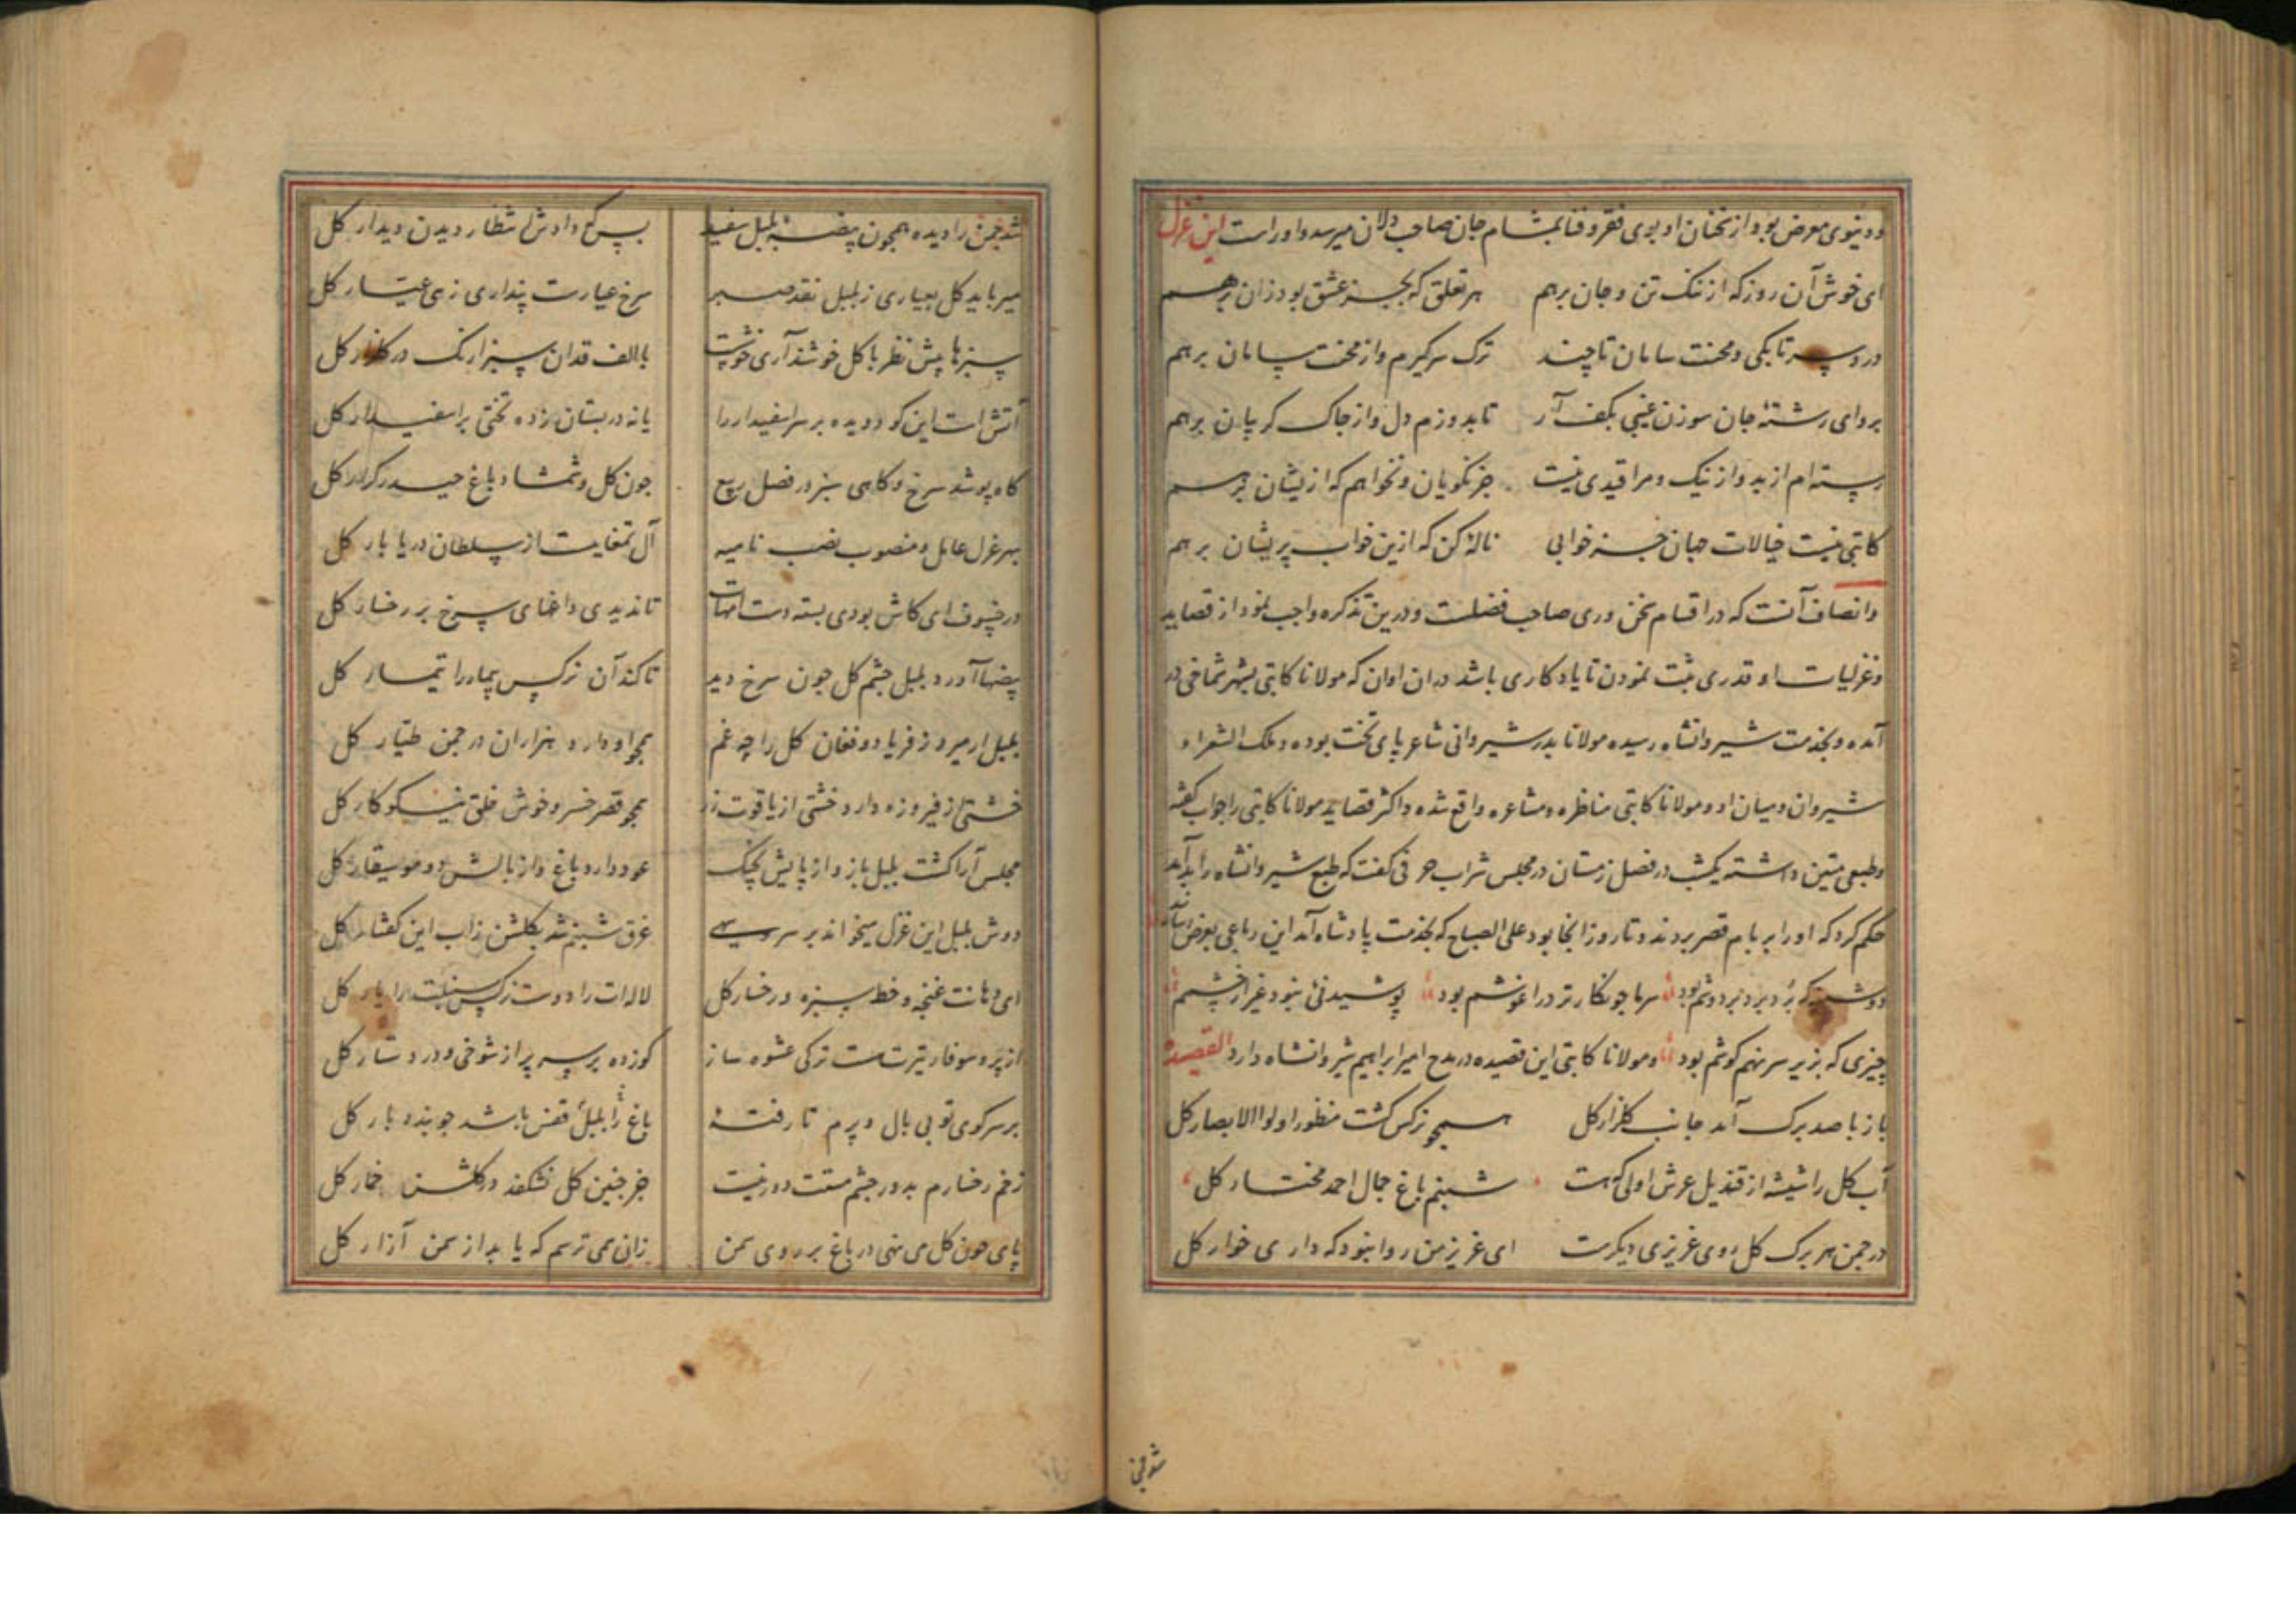 ودنیوی معرض بود و از سخنان او بوی فقر و فنا بمشام جان صاحب دلان میرسد و اوراست این غزل
ای خوش آن روز که از ننک تن و جان برهم هر تعلق که بجز عشق بود زان برهم
درد سر تا بکی و محنت سامان تا چند ترک سر کیرم و از محنت سامان برهم
برو ای رشتۀ جان سوزن عیسی بکف آر تا بدوزم دل و از چاک کریبان برهم
رسته ام از بد و از نیک و مرا قیدی نیست جز نکویان و نخواهم که از یشان برهم
کاتبی نیست خیالات جهان جز خوابی نالۀ کن که ازین خواب پریشان برهم
وانصاف آنست که در اقسام سخن وری صاحب فضلست و درین تذکره واجب نمود از قصاید
و غزلیات او قدری ثبت نمودن تا یادکاری باشد در ان اوان که مولانا کاتبی بشهر شماخی در
آمده و بخدمت شیروانشاه رسیده مولانا بدر شیروانی شاعر پای تخت بوده و ملک الشعراء
شیروان و میان او و مولانا کاتبی مناظره و مشاعره واقع شده و اکثر قصاید مولانا کاتبی را جواب کفته
وطبعی متین داشته یکشب در فصل زمستان در مجلس شراب حرفی کفت که طبع شیروانشاه را بد آمد
حکم کرد که اورا بر بام قصر بردند و تا روز انجا بود علی الصباح که بخدمت پادشاه آمد این رباعی بعرض رساند
دوشینه که برد برد بر دوشم بود سرما چو نکار تر در اغوشم بود پوشیدنئ نبود غیر از چشمم
چیزی که بزیر سر نهم کوشم بود و مولانا کاتبی این قصیده در مدح امیر ابراهیم شروانشاه دارد القصیدة
باز با صد برک آمد جانب کلزار کل همچو نرکس کشت منظور اولوا الابصار کل
آب کل را شیشه از قندیل عرش اولی که هست شبنم باغ جمال احمد مختار کل
در چمن هر برک کل روی عزیزی دیکرست ای عزیز من روا نبود که داری خوار کل
شد چمن
شد چمن را دیده همچون بیضۀ بلبل سفید بس که دادش انتظار دیدن دیدار کل
میرباید کل بعیاری ز بلبل نقد صبر سرخ عیارست پنداری زهی عیار کل
سبزها پیش نظر با کل خوشند آری خوشت با الف قدان سبزارنک در کلزار کل
آتش است این کو دویده بر سر اسفیدار را یا نه در بستان زده تختی بر اسفیدار کل
کاه پوشد سرخ و کاهی سبز در فصل ربیع چون کل و شمشاد باغ حیدر کرار کل
بهر عزل عامل و منصوب نصب نامیه آل تمغاییست از سلطان دریا بار کل
در خسوف ای کاش بودی بسته دست امهات تا ندیدی داغهای سرخ بر رخسار کل
بیضها آورد بلبل چشم کل چون سرخ دید تا کند آن نرکس بیمار را تیمار کل
بلبل ار میرد ز فریاد و فغان کل را چه غم همچو او دارد هزاران در چمن طیار کل
خشتی از فیروزه دارد خشتی از یاقوت زر همچو قصر خسرو خوش خلق نیکو کار کل
مجلس آرا کشت بلبل باز و از پایش چنک عود دارد باغ و از بالش دو موسیقار کل
دوش بلبل این غزل میخواند بر سرو سهی غرق شبنم شد بکلشن زاب این کفتار کل
ای دهانت غنچه و خط سبزه و رخسار کل لاله ات را دوست نرکس سنبلت را یار کل
از پر و سوفار تیرت مست ترکی عشوه ساز کو زده بر سر پر از شوخی و در دستار کل
بر سر کوی تو بی بال و پرم تا رفتۀ باغ را بلبل قفس باشد چو بندد بار کل
زخم رخسارم بدور چشم مستت دور نیست جز چنین کل نشکفد در کلشن خمار کل
پای چون کل می نهی در باغ بر روی سمن زان همی ترسم که یابد از سمن آزار کل